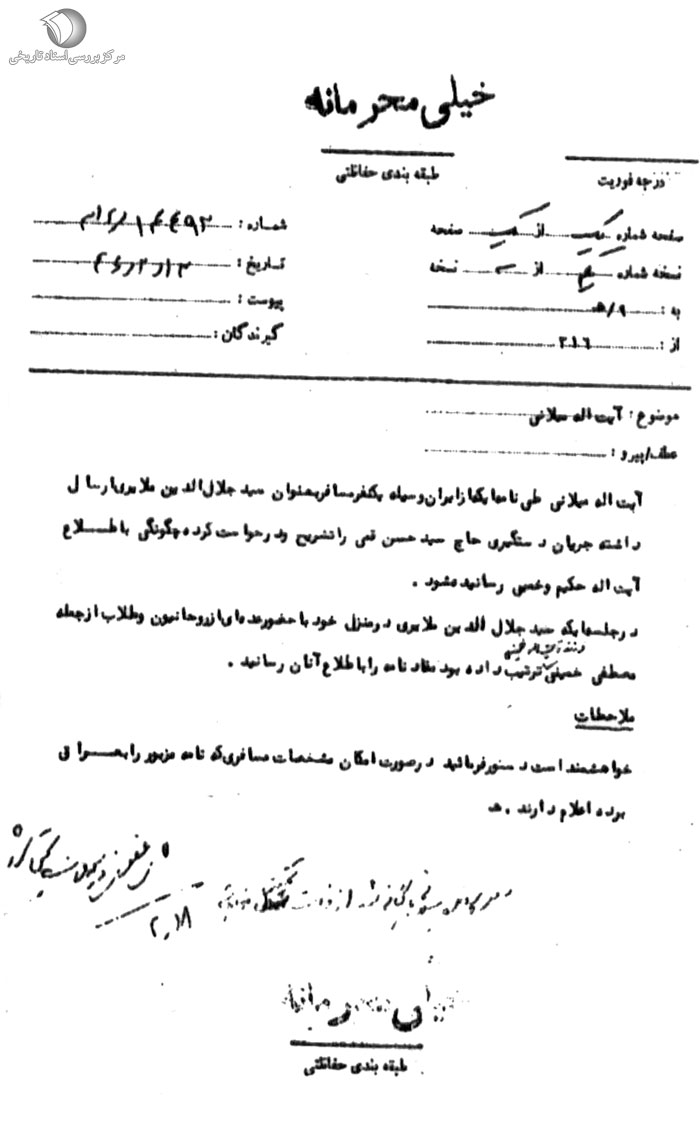 مرکز بررسی اسناد تاریخی
خیلی محرمانه
طبقه بندی حفاظتی
درجه فوریت
صفحه شماره یک از یک صفحه
نسخه شماره از نسخه
به : ۹/ه
از : ۲۱۶
شماره :
تاریخ : ۴۶/۲/۱۳
پیوست :
گیرندگان :
موضوع : آیت اله میلانی
عطف/پیرو :
آیت اله میلانی طی نامهایکه از ایران وسیله یکنفر مسافر بعنوان سید جلال الدین طاهری ارسال
داشته جریان دستگیری حاج سید حسن قمی را تشریح ودرخواست کرده چگونگی باطلاع
آیت اله حکیم وخمینی رسانیده شود .
درجلسهایکه سید جلال الدین طاهری درمنزل خود با حضور عدهای از روحانیون وطلاب ازجمله
مصطفی خمینی ترتیب داده بود مفاد نامه را باطلاع آنان رسانید .
ملاحظات
خواهشمند است دستور فرمائید درصورت امکان مشخصات مسافری که نامه مزبور را بعراق
برده اعلام دارند . ه
۲/۱۸
طبقه بندی حفاظتی